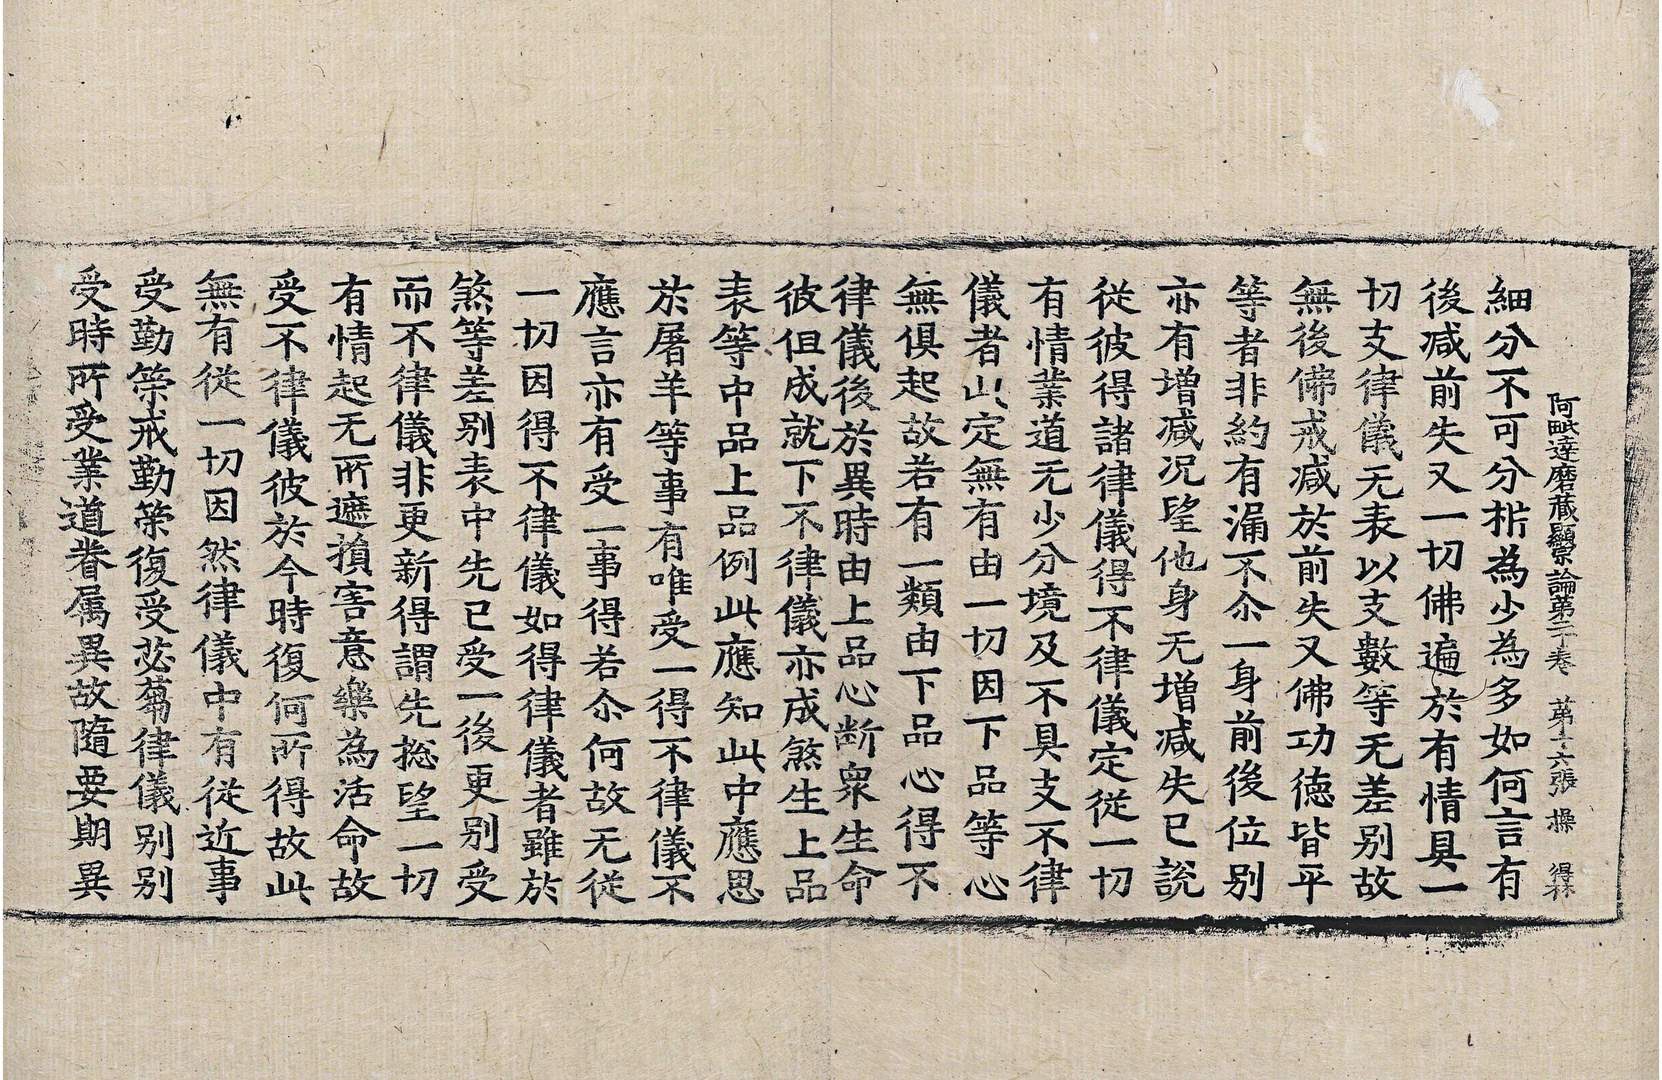 阿毗達磨藏顯宗論第二十卷 第十六張 操 得林
細分不可分㭊為少為多如何言有
後减前失又一切佛遍於有情具一
切支律儀无表以支數等无差别故
無後佛戒减於前失又佛功德皆平
等者非約有漏不尒一身前後位别
亦有增减况望他身无增减失已說
從彼得諸律儀得不律儀定從一切
有情業道无少分境及不具支不律
儀者此定無有由一切因下品等心
無俱起故若有一類由下品心得不
律儀後於異時由上品心断衆生命
彼但成就下不律儀亦成煞生上品
表等中品上品例此應知此中應思
於屠羊等事有唯受一得不律儀不
應言亦有受一事得若尒何故无從
一切因得不律儀如得律儀者雖於
煞等差别表中先已受一後更别受
而不律儀非更新得謂先揔望一切
有情起无所遮損害意樂為活命故
受不律儀彼於今時復何所得故此
無有從一切因然律儀中有從近事
受勤策戒勤策復受苾蒭律儀别别
受時所受業道眷属異故隨要期異